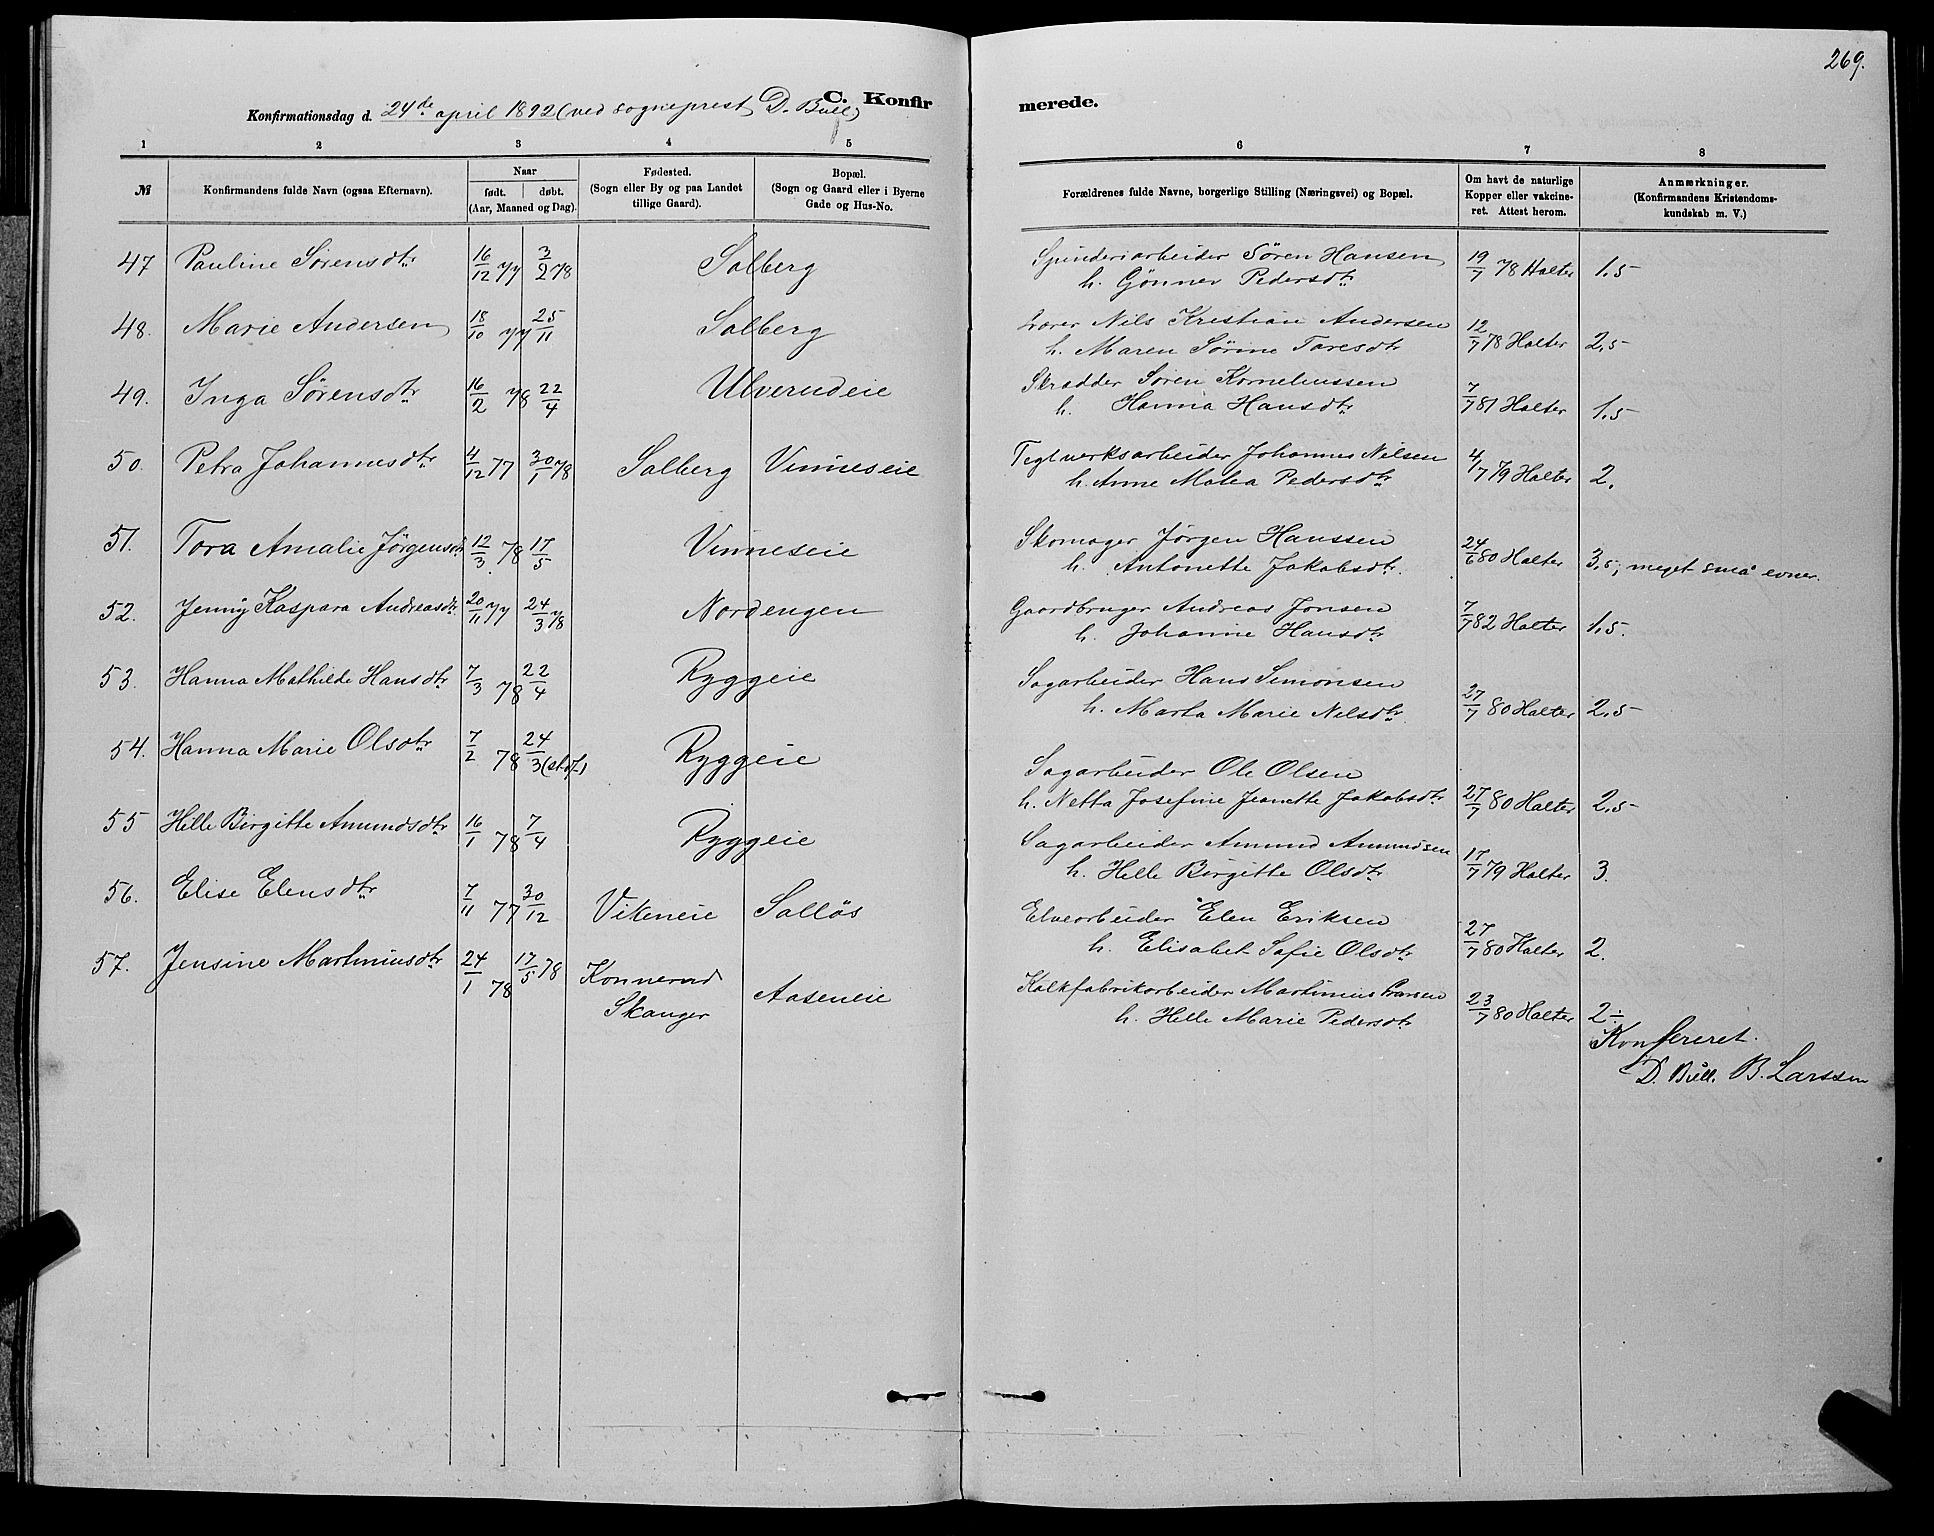 269.
C. Konfirmerede.
Konfirmationsdag d. 24de april 1892 (ved sogneprest D. Bull)
1 2 3 4 5 6 7 8
№
Konfirmandens fulde Navn (ogsaa Efternavn).
Naar
født. døbt.
(Aar, Maaned og Dag).
Fødested.
(Sogn eller By og paa Landet
tillige Gaard).
Bopæl.
(Sogn og Gaard eller i Byerne
Gade og Hus-No.
Forældrenes fulde Navne, borgerlige Stilling (Næringsvei) og Bopæl.
Om havt de naturlige
Kopper eller vakcine-
ret. Attest herom.
Anmærkninger.
(Konfirmandens Kristendoms-
kundskab m. V.)
47 Pauline Sørensdtr 16/12 77 3/2 78 Solberg Spinderiarbeider Søren Hansen 19/7 78 Holter 1,5
h. Gønner Pedersdtr
48. Marie Andersen 18/10 77 25/11 Solberg Lærer Nils Kristian Andersen 12/7 78 Holter 2,5
h. Maren Sørine Taresdtr
49. Inga Sørensdtr 16/2 78 22/4 Ulverudeie Skrædder Søren Korneliussen 7/7 81 Holter 1,5
h. Hanna Hansdtr
50. Petra Johannesdtr 4/12 77 30/1 78 Solberg Vinneseie Teglverksarbeider Johannes Nilsen 4/7 79 Holter 2.
h. Anne Malea Pedersdtr
51. Tora Amalie Jørgensdtr 12/3 78 17/5 Vinneseie Skomager Jørgen Hanssen 24/6 80 Holter 3,5; meget små evner.
h. Antonette Jakobsdtr.
52. Jenny Kaspara Andreasdtr 20/11 77 24/3 78 Nordengen Gaardbruger Andreas Jonsen 7/7 82 Holter 1,5.
h. Johanne Hansdtr
53. Hanna Mathilde Hansdtr 7/3 78 22/4 Ryggeie Sagarbeider Hans Simonsen 27/7 80 Holter 2,5
h. Marta Marie Nilsdtr.
54. Hanna Marie Olsdtr 7/2 78 24/3 (st.df.) Ryggeie Sagarbeider Ole Olsen 27/7 80 Holter 2,5
h. Netta Josefine Jeanette Jakobsdtr
55 Helle Birgitte Amundsdtr 16/1 78 7/4 Ryggeie Sagarbeider Amund Amundsen 17/7 79 Holter 3.
h. Helle Birgitte Olsdtr
56. Elise Elensdtr 7/11 77 30/12 Vikeneie Solløs Elvearbeider Elen Eriksen 27/7 80 Holter 2.
h. Elisabet Sofie Olsdtr
57. Jensine Martiniusdtr 24/1 78 17/5 78 Konnerud Skanger Aaseneie Kalkfabrikarbeider Martinius 23/7 80 Holter 2÷
h. Helle Marie Pedersdtr
Konfereret.
D. Bull. B. Larssen